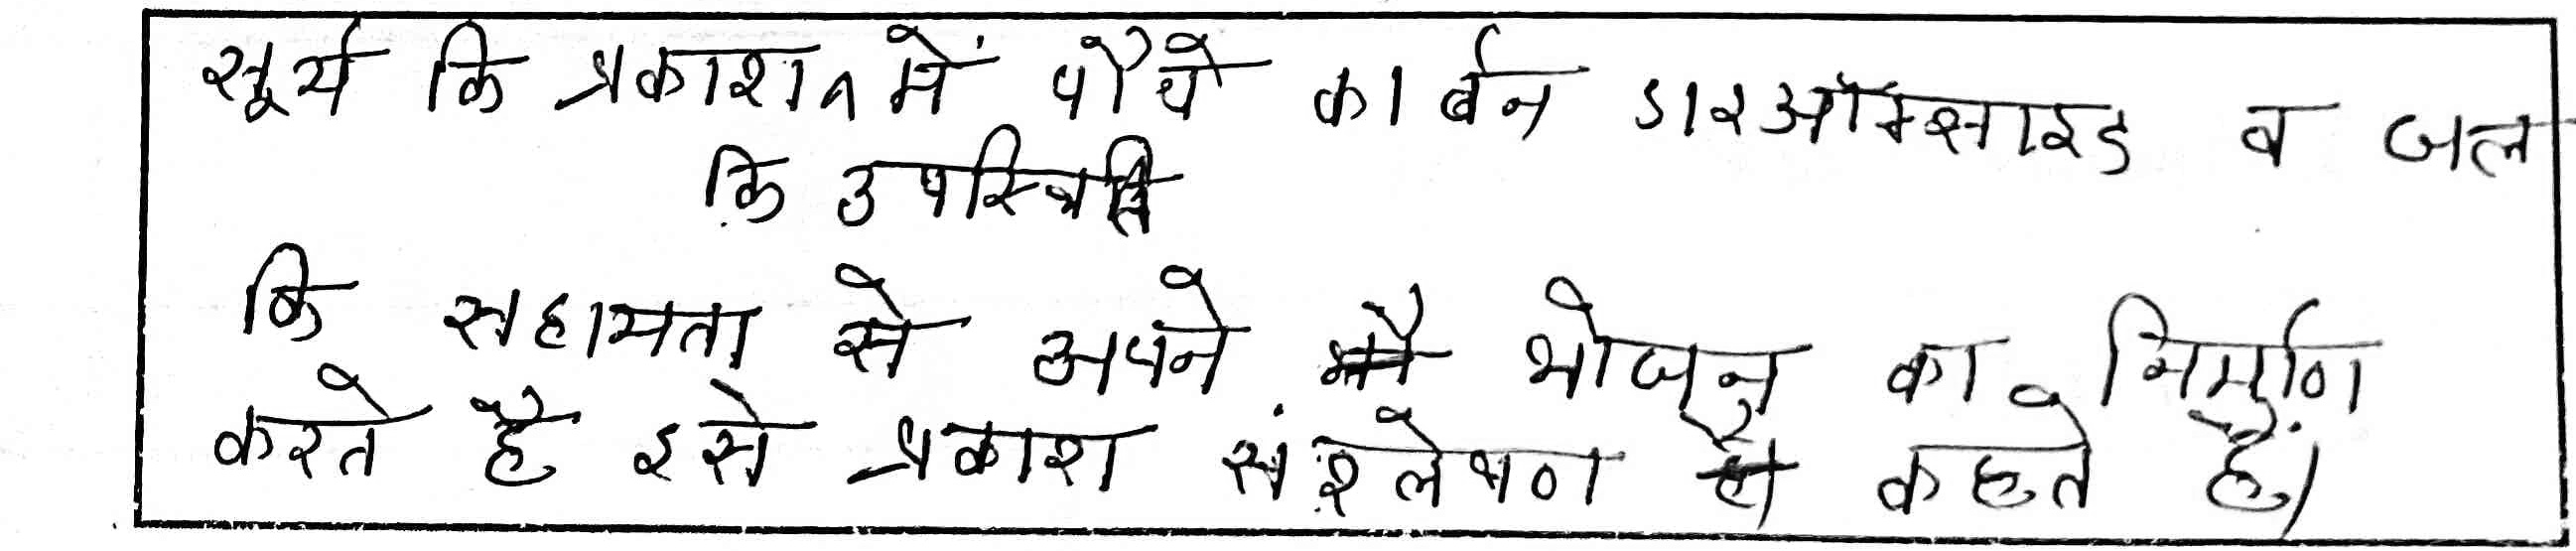 सूर्य कि प्रकाश में पौधे कार्बन डाइऑक्साइड व जल
कि उपस्थिति
कि सहायता से अपने भोजन का निर्माण
करते है इसे प्रकाश संश्लेषण कहते हैं।